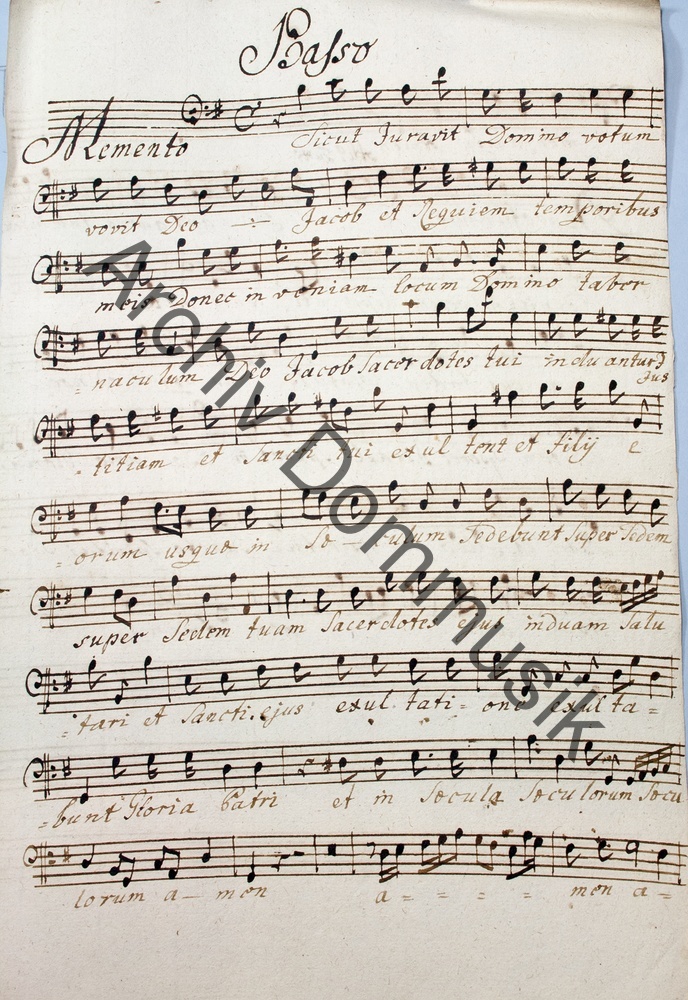 Basso
Memento Sicut Juravit Domino votum
vovit Deo Jacob et Requiem temporibus
meis Donec in veniam locum Domino taber
= naculum Deo Jacob Sacerdotes tui induantur J
jus
= titiam et Sancti tui exul tent et filij e
= orum usque in Se - culum Sedebunt Super Sedem
super Sedem tuam Sacerdotes ejus induam Salu
= tari et Sancti ejus exul tati = one exul ta =
= bunt Gloria Patri et in Sæcula Sæculorum Sæcu
lorum a - men a = = = = men a =
Archiv Dommusik